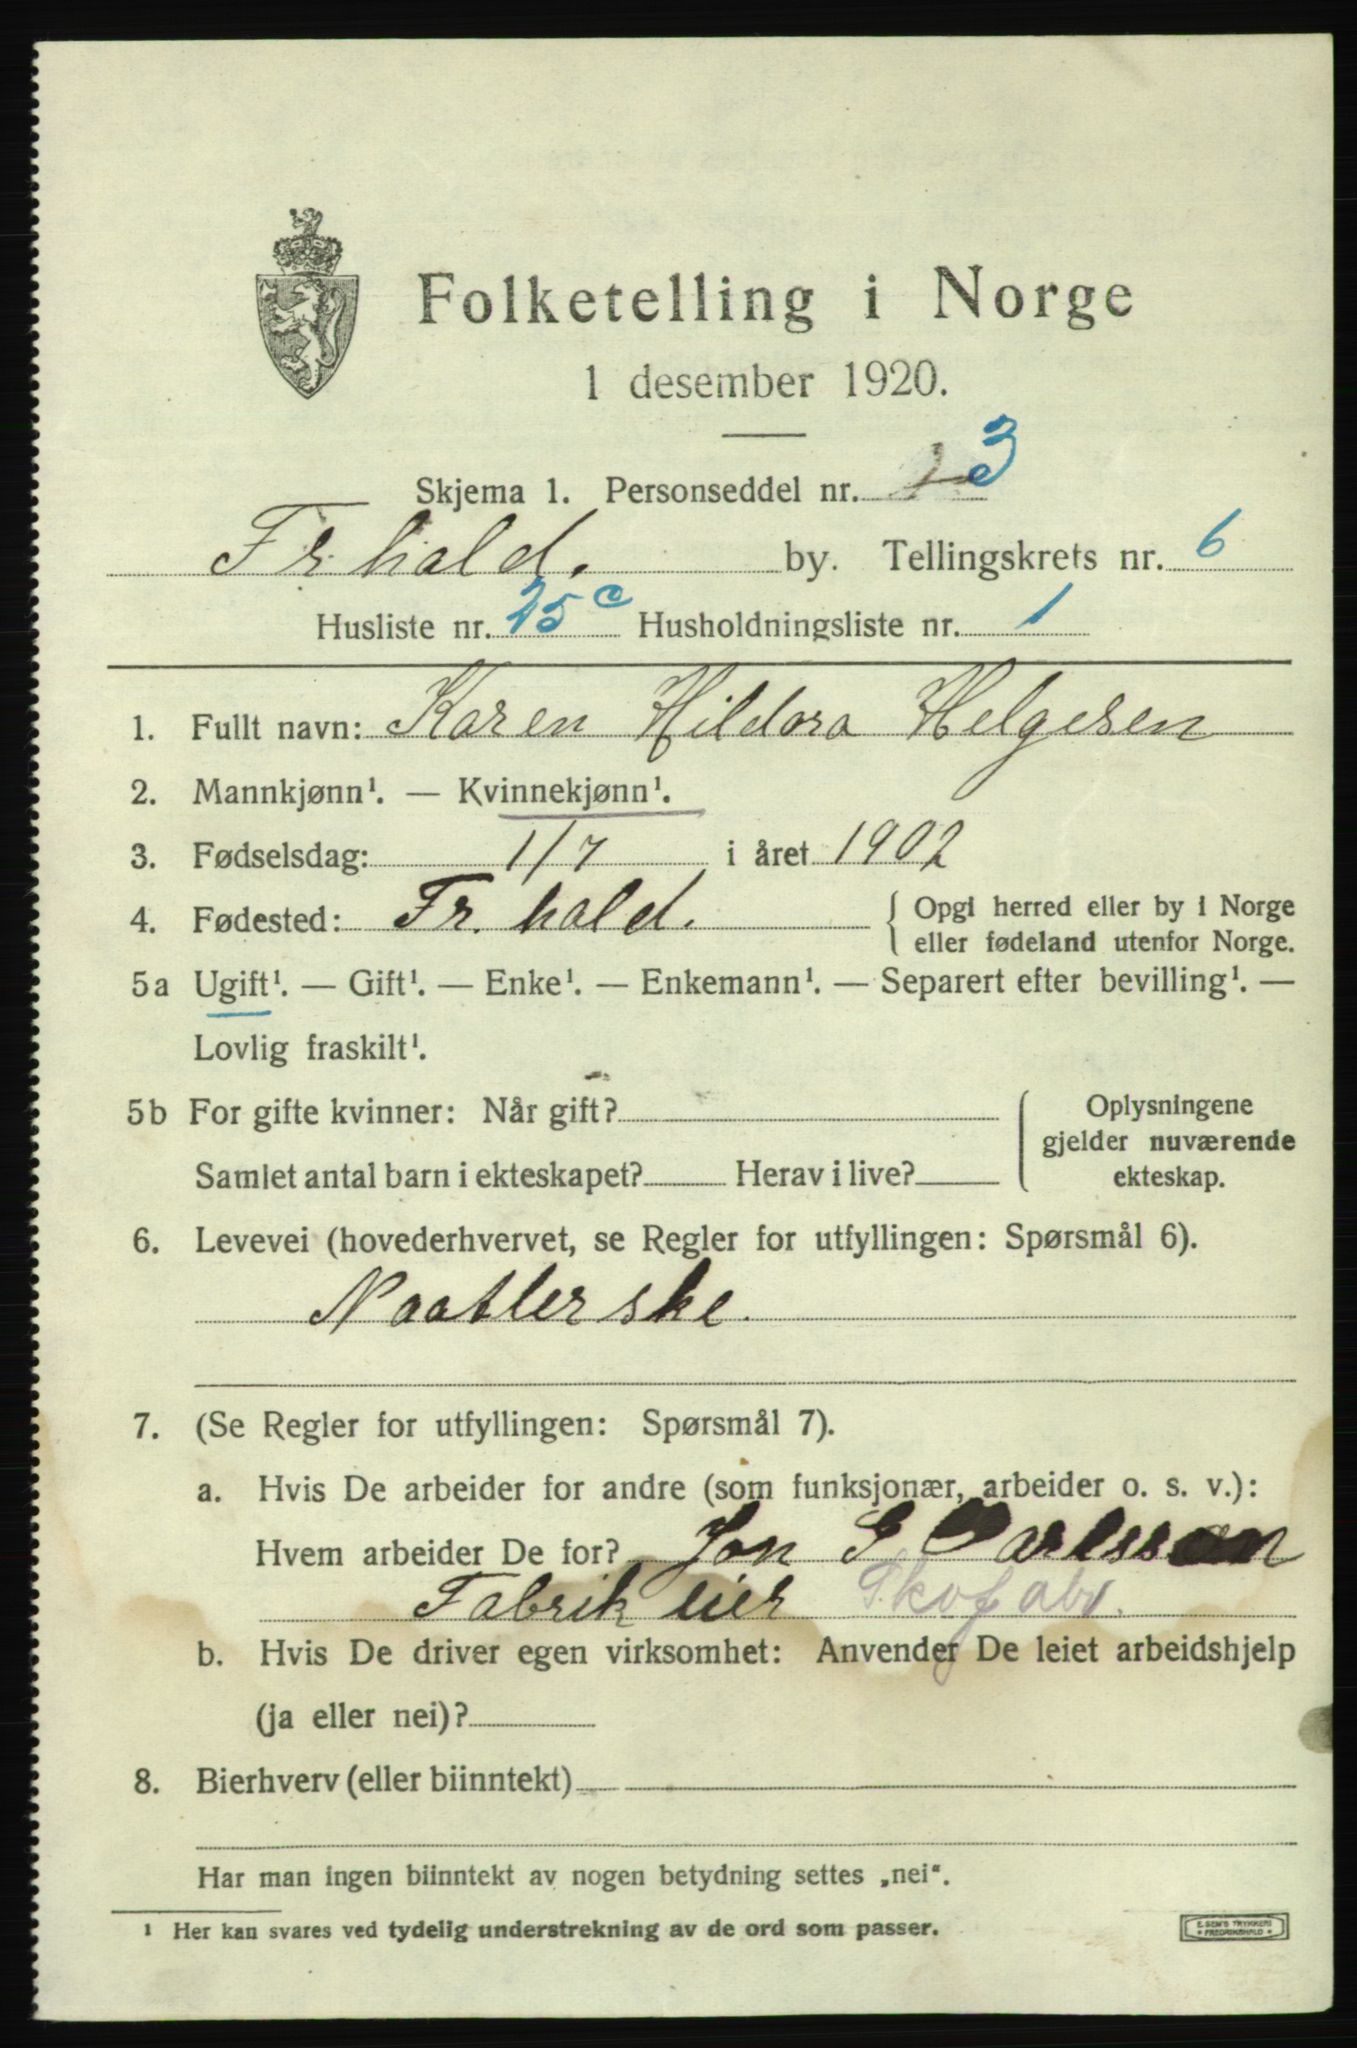 Folketelling i Norge
1 desember 1920.
Skjema 1. Personseddel nr. 3
Fr.hald. by. Tellingskrets nr. 6
Husliste nr. 25c Husholdningsliste nr. 1
1. Fullt navn: Karen Hildora Helgesen
2. Mannkjønn¹. — Kvinnekjønn¹.
3. Fødselsdag: 1/7 i året 1902
4. Fødested: Fr. hald. { Opgi herred eller by i Norge
eller fødeland utenfor Norge.
5a Ugift¹. — Gift¹. — Enke¹. — Enkemann¹. — Separert efter bevilling¹. —
Lovlig fraskilt¹.
5b For gifte kvinner: Når gift?
Samlet antal barn i ekteskapet? Herav i live?
Oplysningene
gjelder nuværende
ekteskap.
6. Levevei (hovederhvervet, se Regler for utfyllingen: Spørsmål 6).
Naatlerske.
7. (Se Regler for utfyllingen: Spørsmål 7).
a. Hvis De arbeider for andre (som funksjonær, arbeider o. s. v.):
Hvem arbeider De for? Jon G Carlsson
Fabrik eier Skofabr.
b. Hvis De driver egen virksomhet: Anvender De leiet arbeidshjelp
(ja eller nei)?
8. Bierhverv (eller biinntekt)
Har man ingen biinntekt av nogen betydning settes „nei“.
¹ Her kan svares ved tydelig understrekning av de ord som passer.
E. SEM'S TRYKKERI
* FREDRIKSHALD *